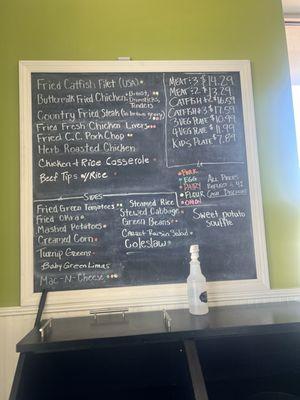 Fried Catfish Filet (USA)
Buttermilk Fried Chicken - Breast,
Drumsticks,
Tenders
Country Fried Steak (w/ brown gravy)
Fried Fresh Chicken Livers
Fried C.C. Pork Chop
Herb Roasted Chicken
Chicken + Rice Casserole
Beef Tips w/ Rice
Meat + 3 $14.29
Meat + 2 $13.29
Catfish + 2 $16.59
Catfish + 3 $17.59
3 Veg Plate $10.99
4 Veg Plate $11.99
Kids Plate $7.89
Sides
Fried Green Tomatoes
Fried Okra
Mashed Potatoes
Creamed Corn
Turnip Greens
Baby Green Limas
Mac-N-Cheese
Steamed Rice
Stewed Cabbage
Green Beans
Carrot Raisin Salad
Coleslaw
Pork
Egg
Dairy
Flour
Onion
All Prices
Reflect a 4%
Cash Discount
Sweet potato
souffle